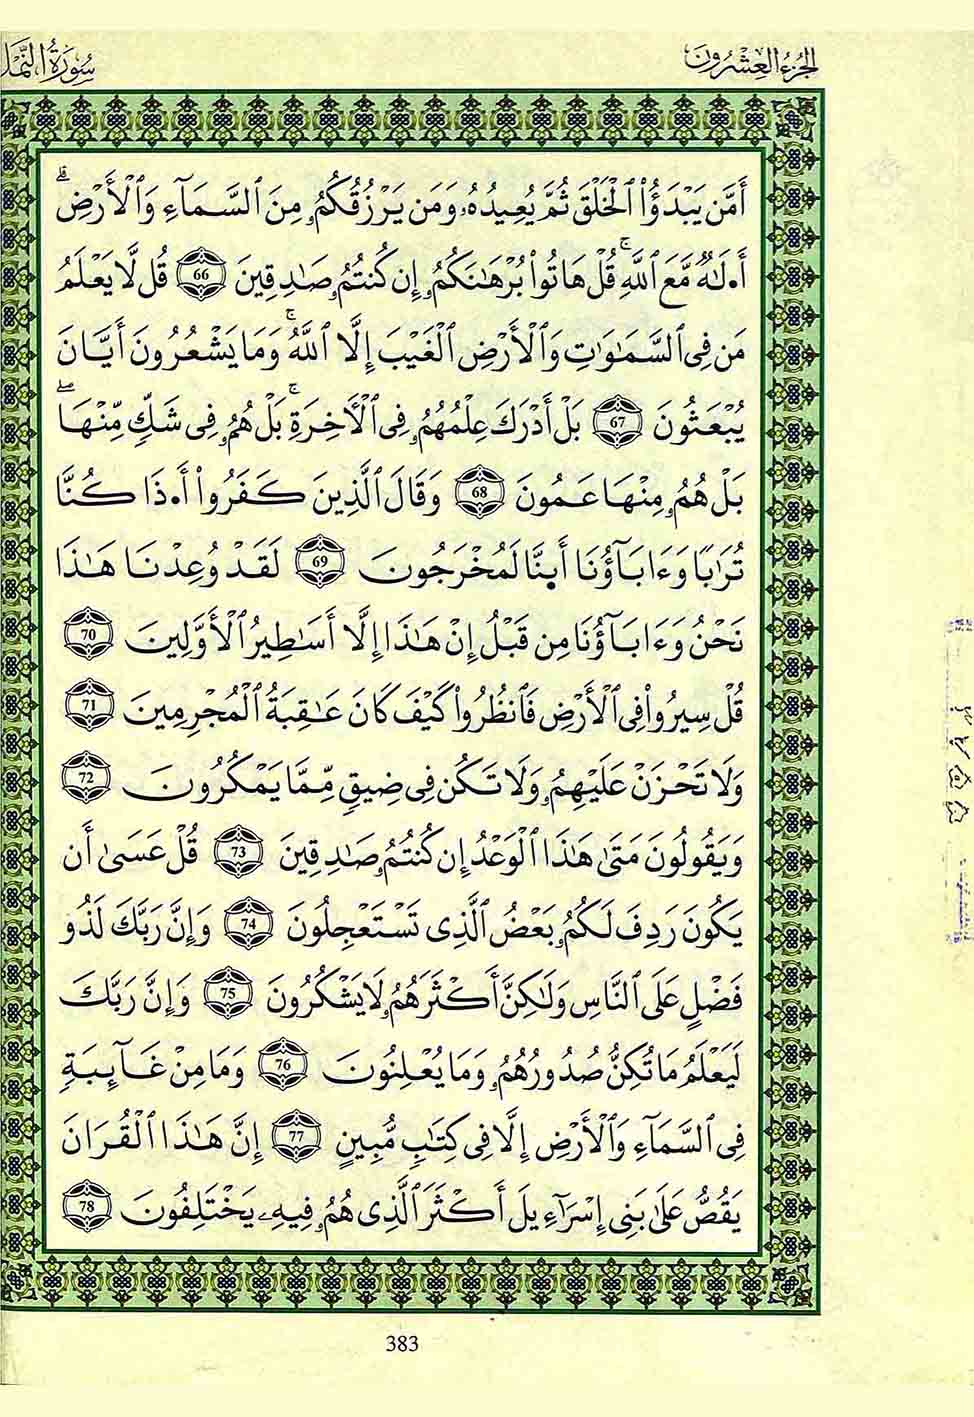 الجزء العشرون
سورة النمل
أَمَّن يَبْدَؤُاْ الْخَلْقَ ثُمَّ يُعِيدُهُۥ وَمَن يَرْزُقُكُمُۥ مِنَ اَلسَّمَآءِ وَالْأَرْضِ
أَ•لَٰهٌ مَّعَ اَللَّهِ قُلْ هَاتُواْ بُرْهَٰنَكُمُۥ إِن كُنتُمُۥ صَٰدِقِينَ 66 قُل لَّا يَعْلَمُ
مَن فِى اِلسَّمَٰوَٰتِ وَالْأَرْضِ اِلْغَيْبَ إِلَّا اَللَّهُ وَمَا يَشْعُرُونَ أَيَّانَ
يُبْعَثُونَ 67 بَلْ أَدْرَكَ عِلْمُهُمُۥ فِى اِلْأَخِرَةِ بَلْ هُمُۥ فِى شَكٍّ مِّنْهَا
بَلْ هُمُۥ مِنْهَا عَمُونَ 68 وَقَالَ اَلَّذِينَ كَفَرُواْ أَ•ذَا كُنَّا
تُرَٰبًا وَءَابَآؤُنَا أَىِٕنَّا لَمُخْرَجُونَ 69 لَقَدْ وُعِدْنَا هَٰذَا
نَحْنُ وَءَابَآؤُنَا مِن قَبْلُ إِنْ هَٰذَا إِلَّا أَسَٰطِيرُ اُلْأَوَّلِينَ 70
قُلْ سِيرُواْ فِى اِلْأَرْضِ فَانظُرُواْ كَيْفَ كَانَ عَٰقِبَةُ اُلْمُجْرِمِينَ 71
وَلَا تَحْزَنْ عَلَيْهِمُۥ وَلَا تَكُن فِى ضِيقٍ مِّمَّا يَمْكُرُونَ 72
وَيَقُولُونَ مَتَىٰ هَٰذَا اَلْوَعْدُ إِن كُنتُمُۥ صَٰدِقِينَ 73 قُلْ عَسَىٰ أَن
يَكُونَ رَدِفَ لَكُمُۥ بَعْضُ اُلَّذِى تَسْتَعْجِلُونَ 74 وَإِنَّ رَبَّكَ لَذُو
فَضْلٍ عَلَى اَلنَّاسِ وَلَٰكِنَّ أَكْثَرَهُمُۥ لَا يَشْكُرُونَ 75 وَإِنَّ رَبَّكَ
لَيَعْلَمُ مَا تُكِنُّ صُدُورُهُمُۥ وَمَا يُعْلِنُونَ 76 وَمَا مِنْ غَآئِبَةٍ
فِى اِلسَّمَآءِ وَالْأَرْضِ إِلَّا فِى كِتَٰبٍ مُّبِينٍ 77 إِنَّ هَٰذَا اَلْقُرَانَ
يَقُصُّ عَلَىٰ بَنِى إِسْرَآءِيلَ أَكْثَرَ اَلَّذِى هُمُۥ فِيهِۦ يَخْتَلِفُونَ 78
383